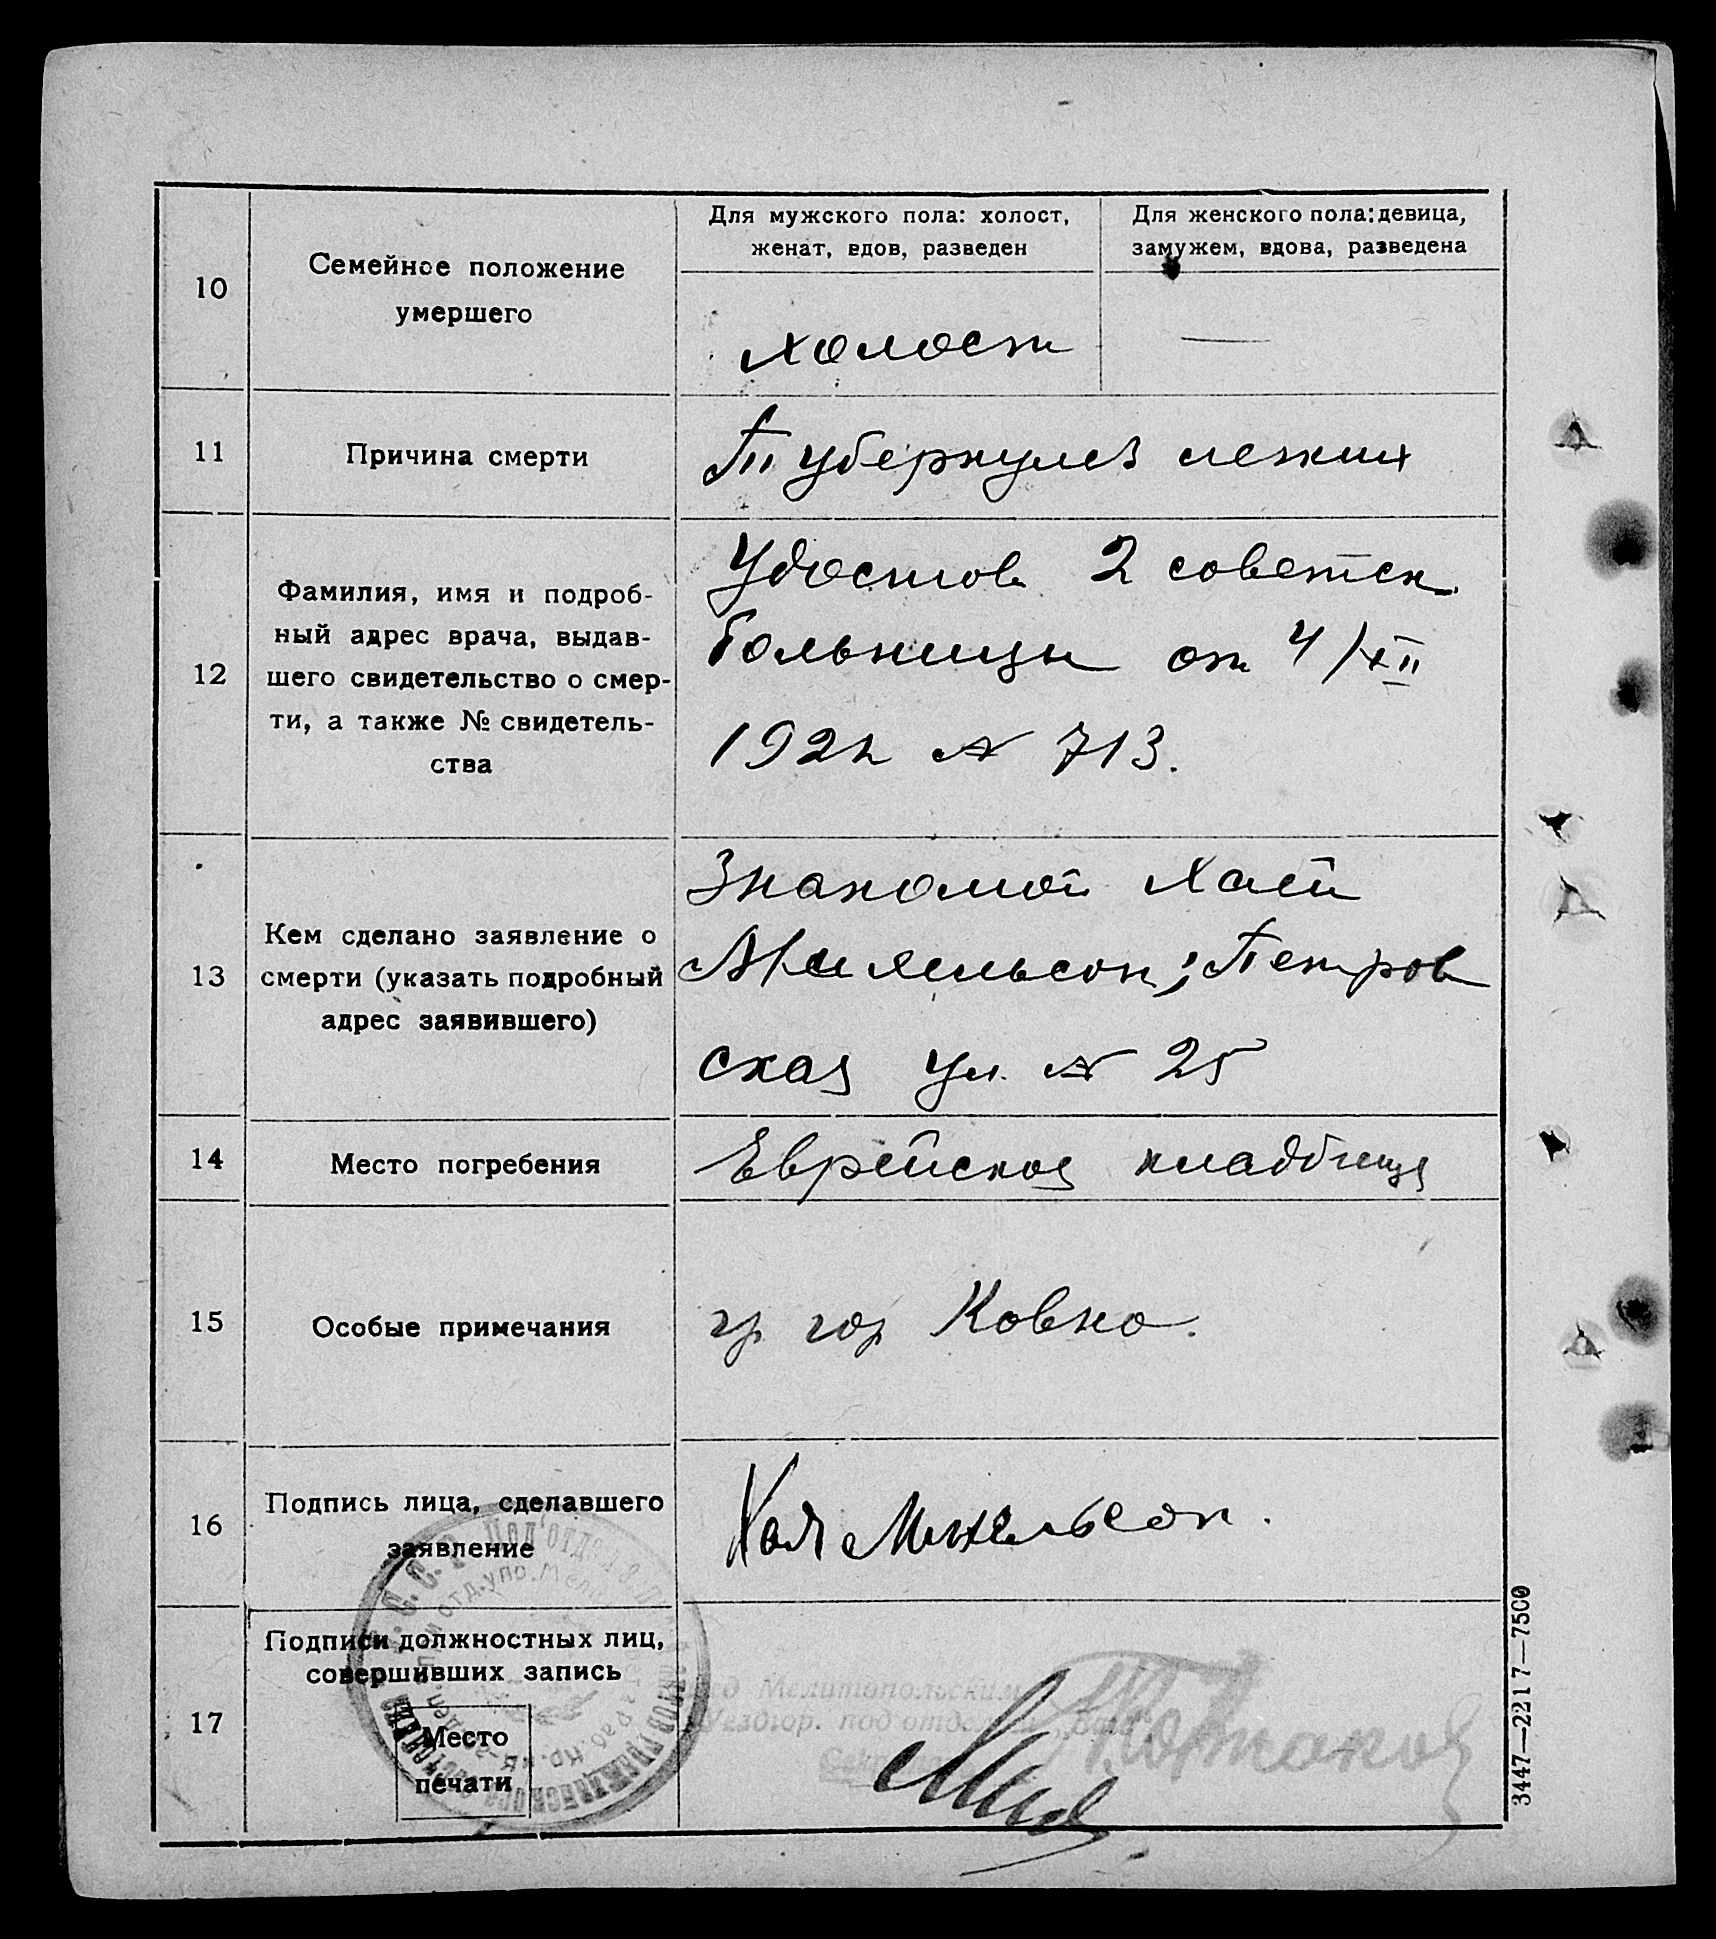 10
Семейное положение
умершего
Для мужского пола: холост,
женат, вдов, разведен
Для женского пола: девица,
замужем, вдова, разведена
холост
—
11
Причина смерти
Туберкулез легких
12
Фамилия, имя и подроб-
ный адрес врача, выдав-
шего свидетельство о смер-
ти, а также № свидетель-
ства
Удостов 2 советск.
больницы от 4/XII
192 № 713.
13
Кем сделано заявление о
смерти (указать подробный
адрес заявившего)
Знакомой Хаей
Михельсон; Петров
ская ул. № 25
14
Место погребения
Еврейское кладбище
15
Особые примечания
гр гор Ковно.
16
Подпись лица, сделавшего
заявление
Хая Михельсон.
17
Подписи должностных лиц,
совершивших запись
Место
печати
Мелитопольским
Уездгор. подотделом
3447—2217—7500